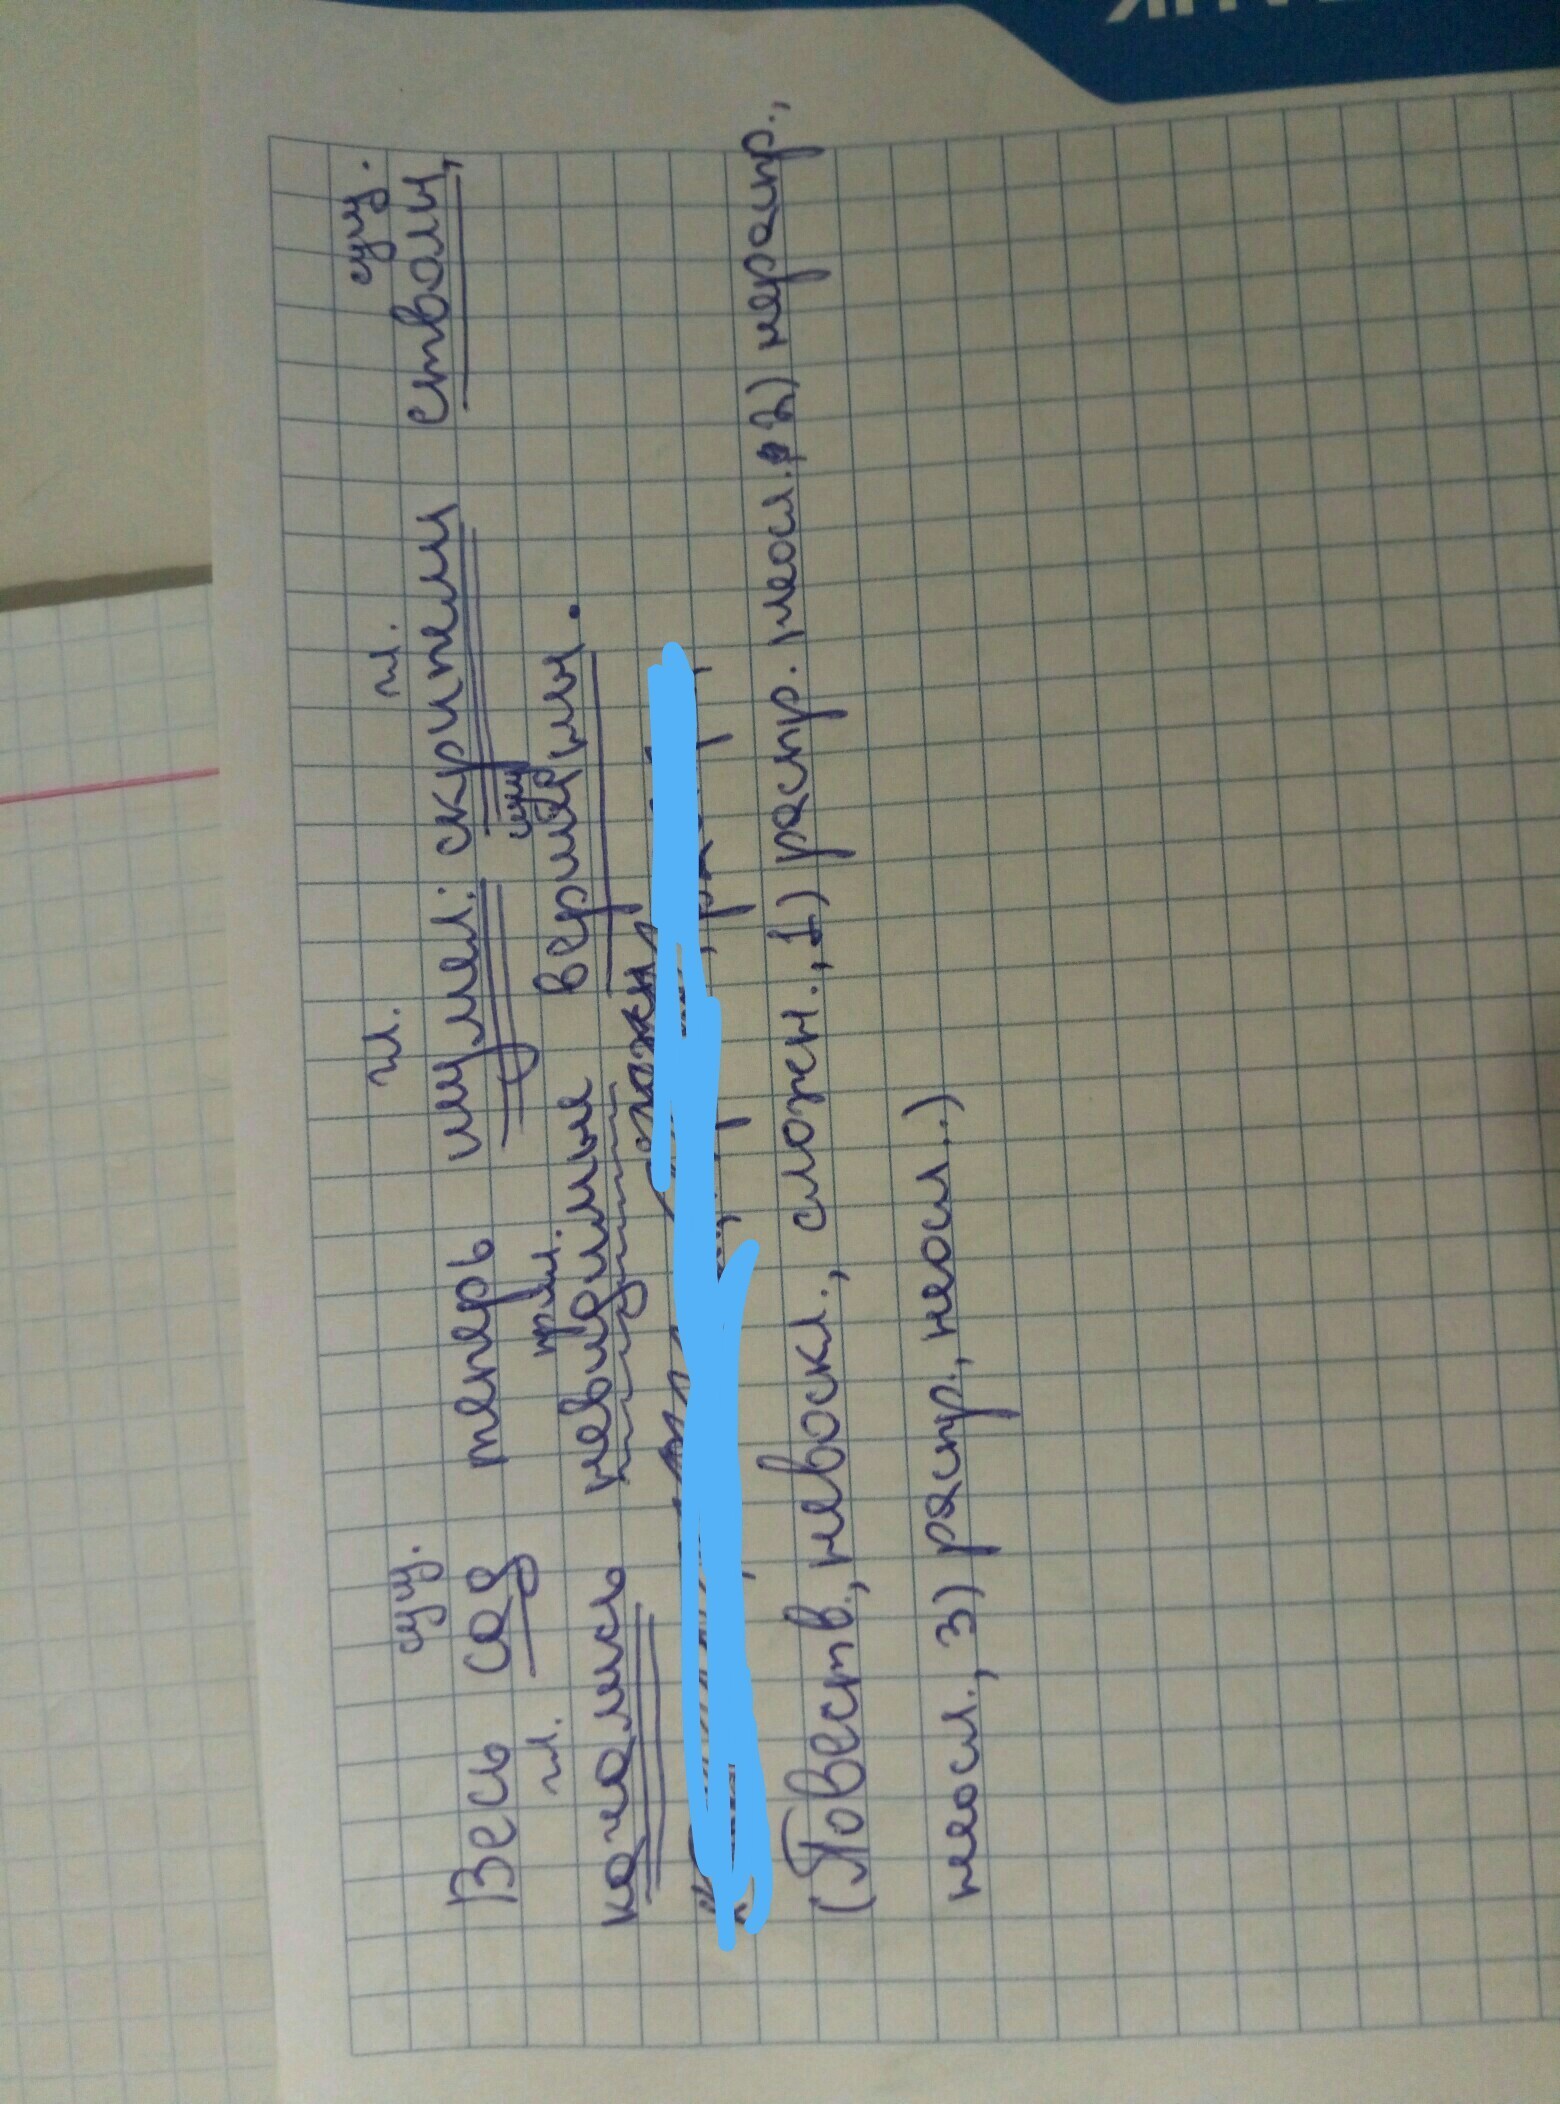 сущ. гл. гл. сущ.
Весь сад теперь шумел: скрипели стволы,
гл. прил. сущ
качались невидимые вершины.
сложн
(Повеств., невоскл., сложн., 1) распр. неосл. 2) нераспр.,
неосл., 3) распр., неосл..)